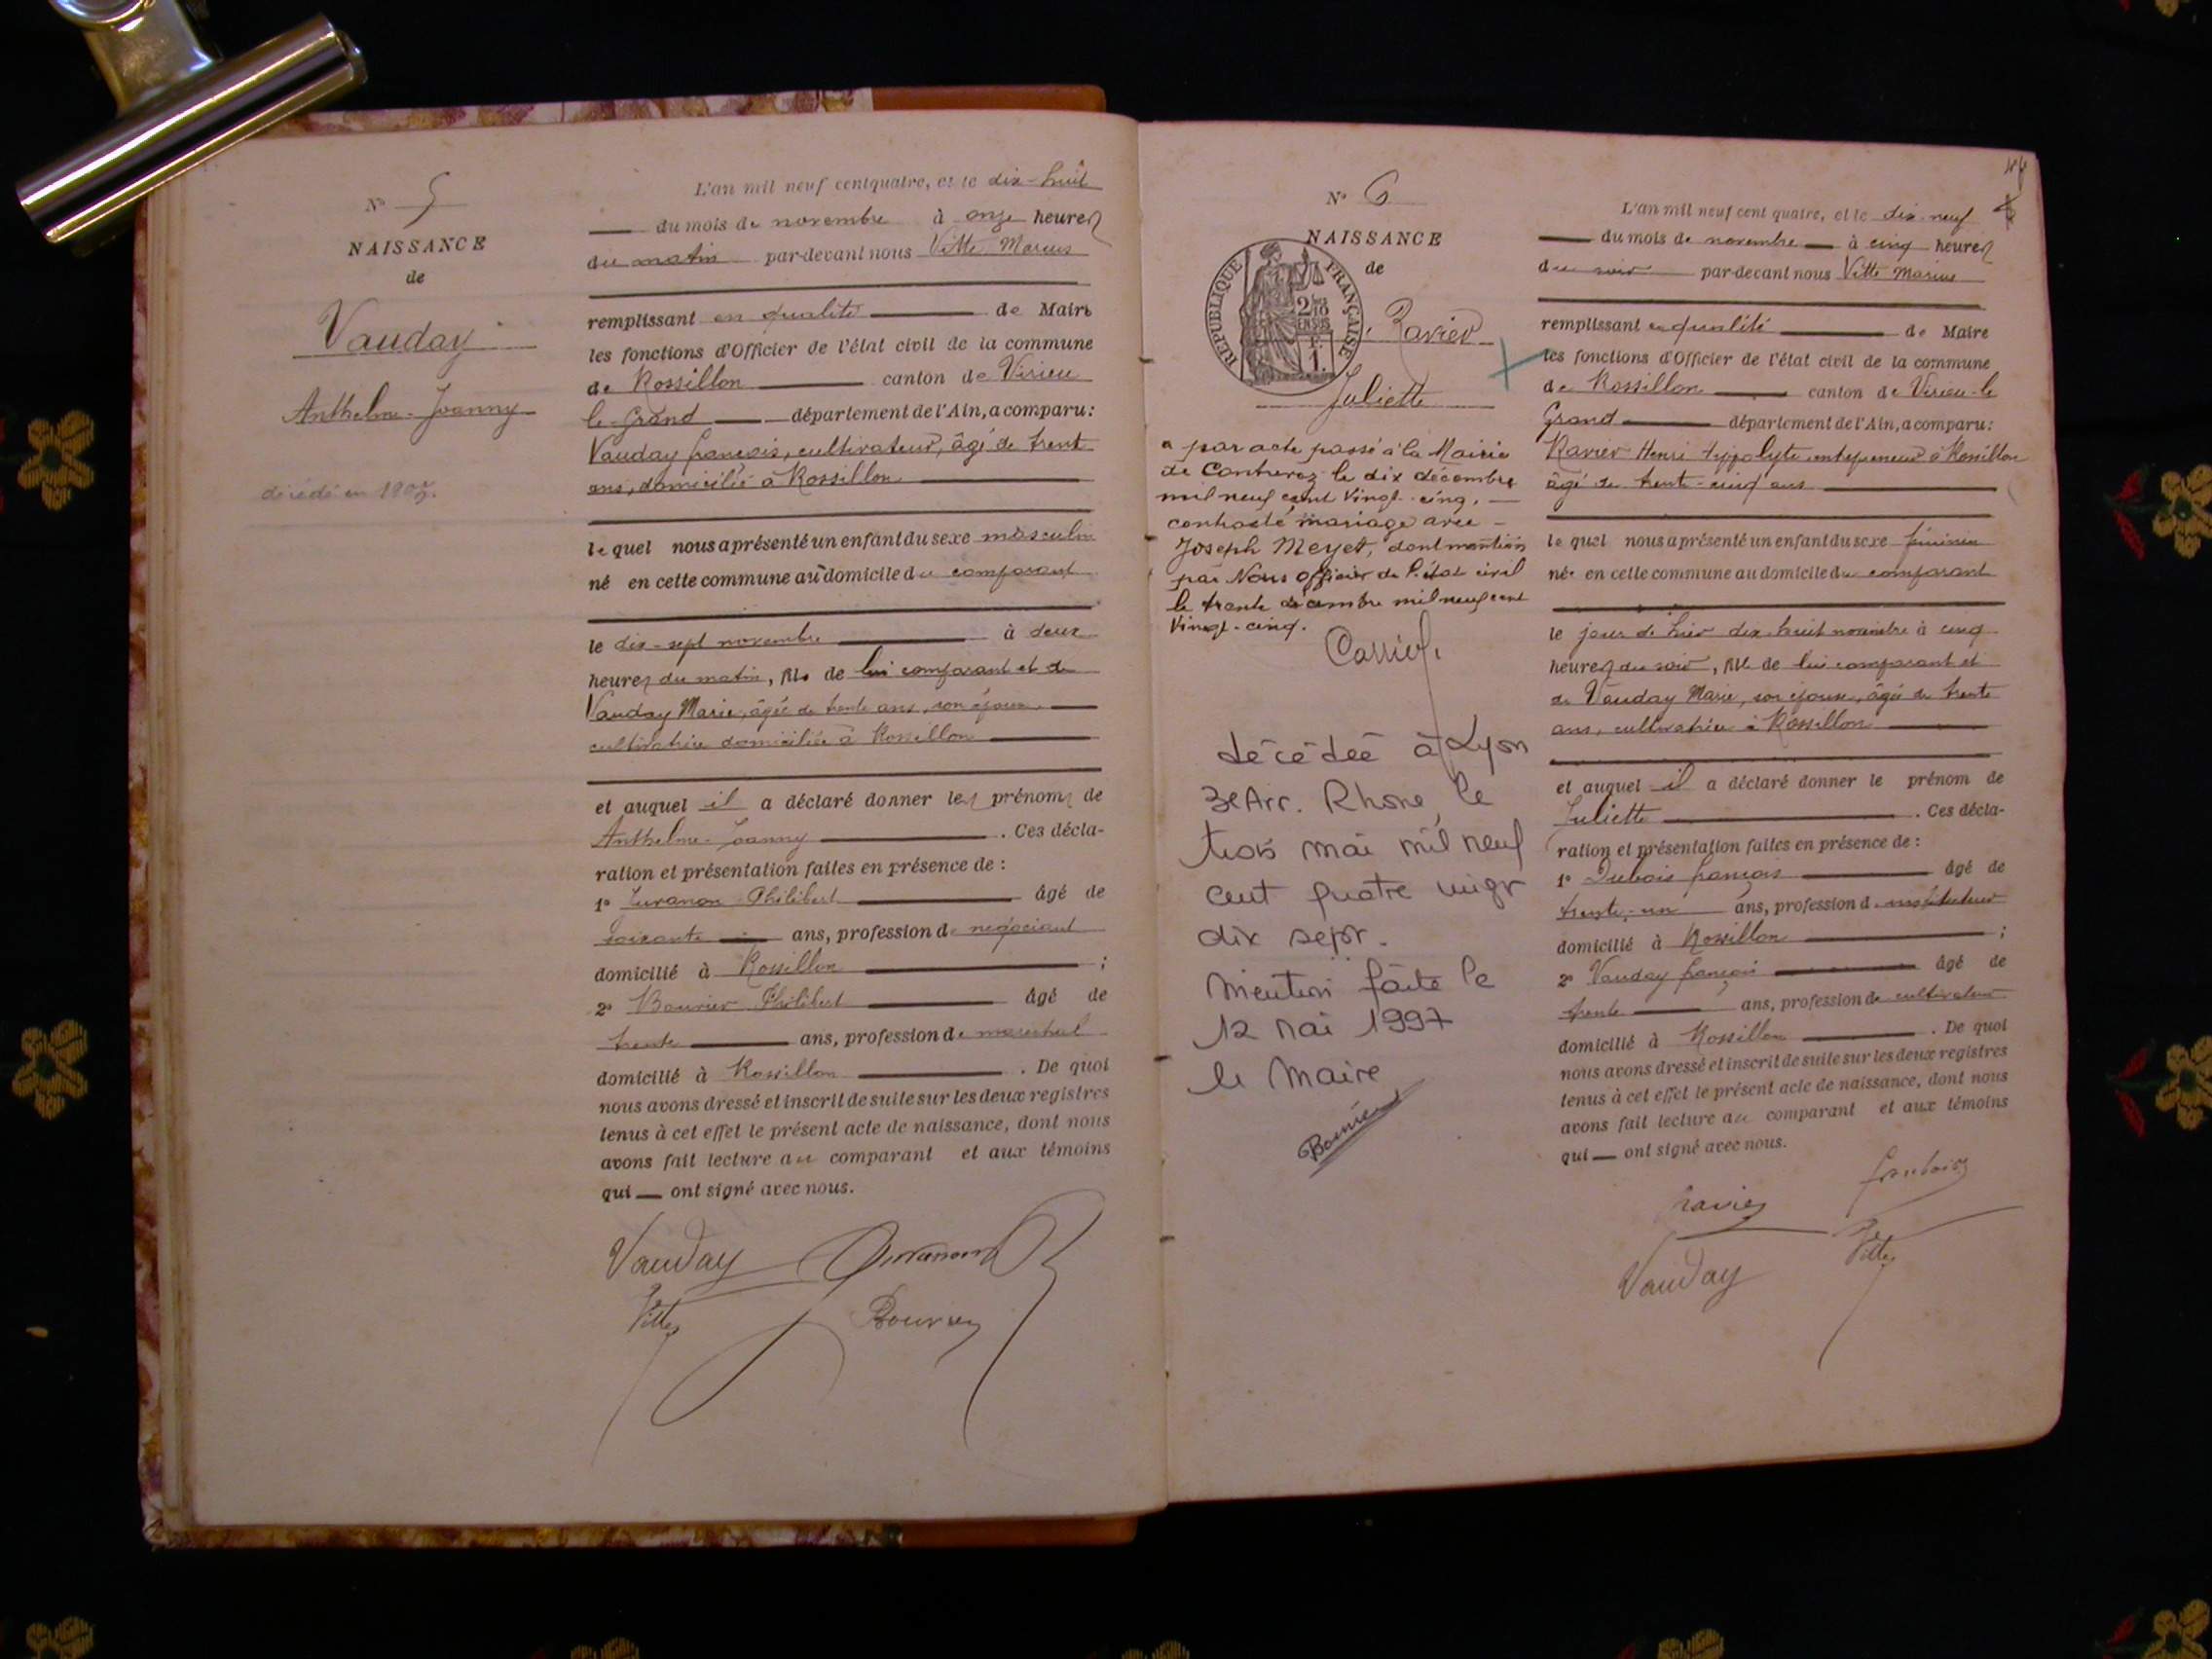 N° 5
NAISSANCE
de
Vauday
Anthelme-Joanny
décédé en 1905.
L'an mil neuf cent quatre, et le dix-huit
du mois de novembre à onze heures
du matin par-devant nous Vitte Marius
remplissant en qualité de Maire
les fonctions d'Officier de l'état civil de la commune
de Rossillon canton de Virieu
le-Grand département de l'Ain, a comparu:
Vauday françois, cultivateur, âgé de trente
ans, domicilié à Rossillon
lequel nous a présenté un enfant du sexe masculin
né en cette commune au domicile du comparant
le dix-sept novembre à deux
heures du matin, fils de lui comparant et de
Vauday Marie, âgée de trente ans, son épouse,
cultivatrice domiciliée à Rossillon
et auquel il a déclaré donner les prénoms de
Anthelme-Joanny. Ces décla-
ration et présentation faites en présence de :
1° Philibert âgé de
soixante ans, profession de négociant
domicilié à Rossillon ;
2° Bouvier Philibert âgé de
trente ans, profession de maréchal
domicilié à Rossillon. De quoi
nous avons dressé et inscrit de suite sur les deux registres
tenus à cet effet le présent acte de naissance, dont nous
avons fait lecture au comparant et aux témoins
qui ont signé avec nous.
Vauday
Vitte Bouvier
N° 6
NAISSANCE
de
REPUBLIQUE FRANÇAISE
Ravier
Juliette
a par acte passé à la Mairie
de Contrevoz le dix décembre
mil neuf cent Vingt-cinq,
contracté mariage avec
Joseph Meyet, dont mention
par Nous officier de l'état civil
le trente décembre mil neuf cent
Vingt-cinq.
décédée à Lyon
3e Arr. Rhone, le
trois mai mil neuf
cent quatre vingt
dix sept.
Mention faite le
12 mai 1997
le Maire
L'an mil neuf cent quatre, et le dix-neuf
du mois de novembre à cinq heures
du soir par-devant nous Vitte Marius
remplissant en qualité de Maire
les fonctions d'Officier de l'état civil de la commune
de Rossillon canton de Virieu-le
Grand département de l'Ain, a comparu:
Ravier Henri Hyppolyte entrepreneur à Rossillon
âgé de trente-cinq ans
lequel nous a présenté un enfant du sexe féminin
née en cette commune au domicile du comparant
le jour de hier dix-huit novembre à cinq
heures du soir, fille de lui comparant et
de Vauday Marie, son épouse, âgée de trente
ans, cultivatrice à Rossillon
et auquel il a déclaré donner le prénom de
Juliette. Ces décla-
ration et présentation faites en présence de :
1° Dubois françois âgé de
trente-un ans, profession d'instituteur
domicilié à Rossillon ;
2° Vauday françois âgé de
trente ans, profession de cultivateur
domicilié à Rossillon. De quoi
nous avons dressé et inscrit de suite sur les deux registres
tenus à cet effet le présent acte de naissance, dont nous
avons fait lecture au comparant et aux témoins
qui ont signé avec nous.
Ravier
Vauday Vitte